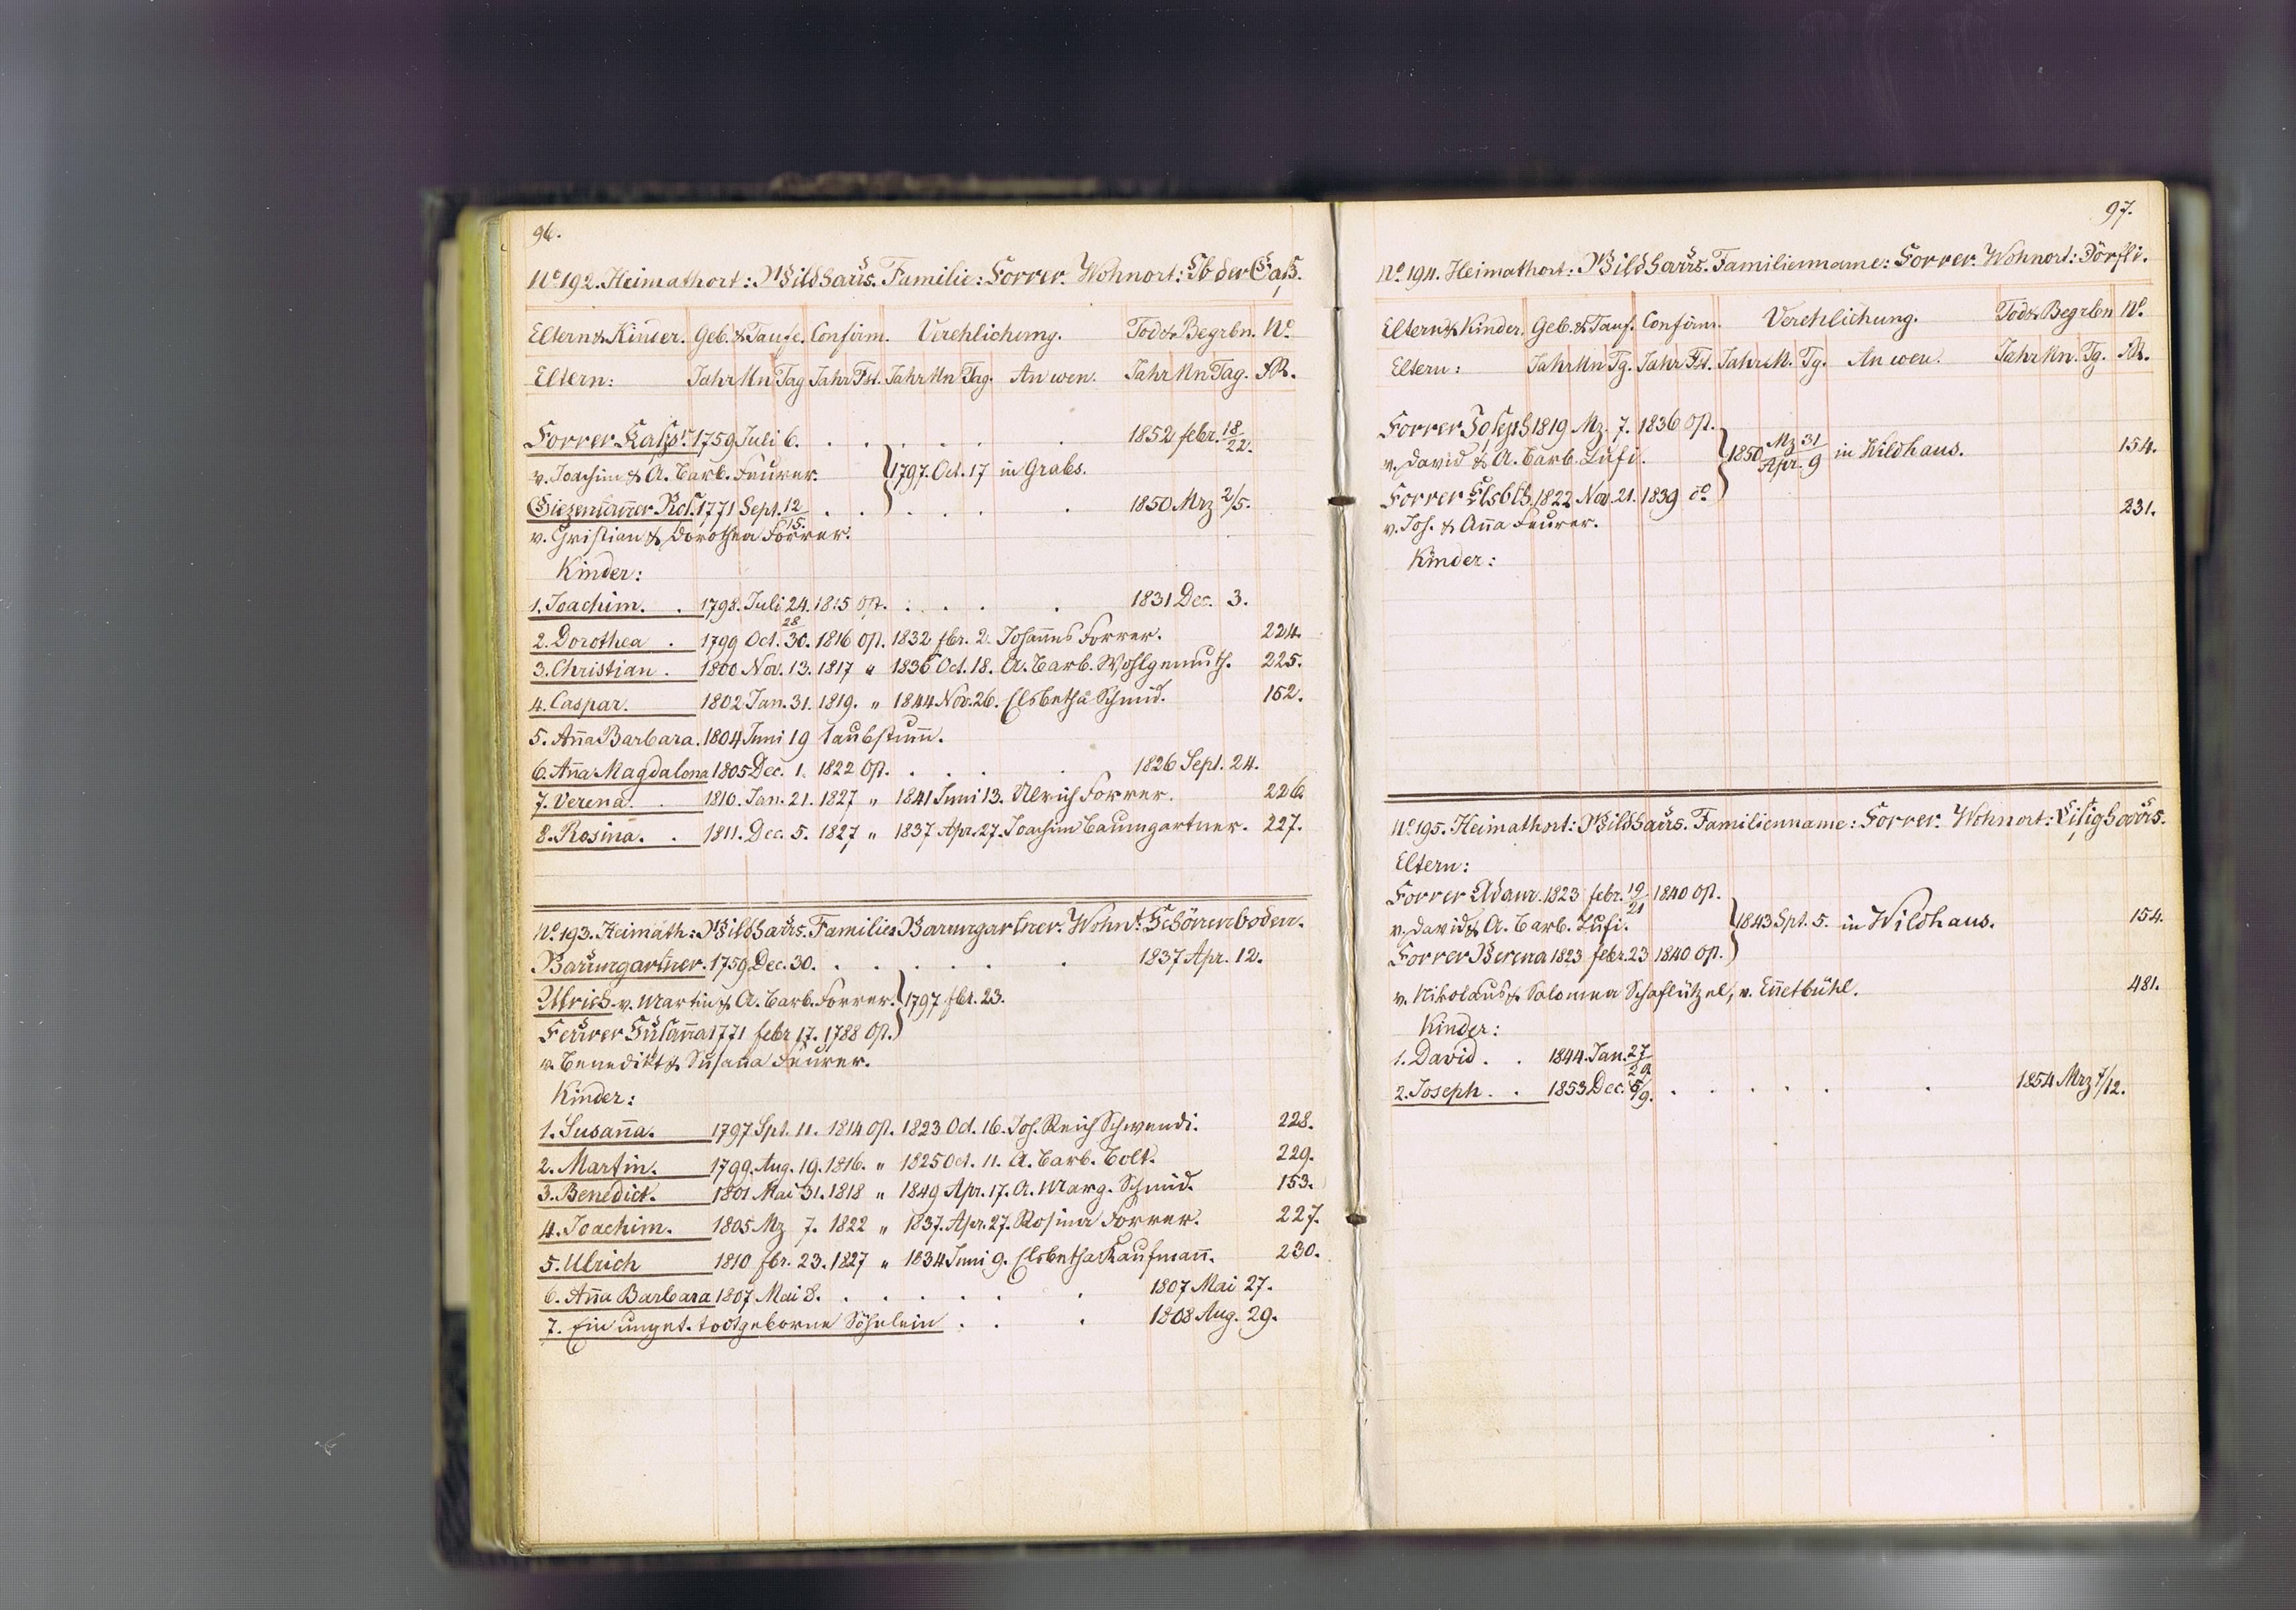 96.
No 192. Heimathort: Wildhaus. Familie: Forrer. Wohnort: Ob der Gaß.
Eltern & Kinder. Geb. & Taufe. Confirm. Verehlichung. Tod & Begrbn. No
Eltern: Jahr Mn Tag Jahr Fst. Jahr Mn Tag. An wen. Jahr Mn Tag. FR.
Forrer Kaspr. 1759 Juli 6. . . . . . . 1852 febr. 18/22.
v. Joachim & A. Barb. Feurer. } 1797. Oct. 17 in Grabs.
Giezentanner Ros. 1771 Sept. 12/15. . . . . . 1850 Mrz 2/5.
v. Christian & Dorothea Forrer.
Kinder:
1. Joachim. . 1798. Juli 24. 1815 Ost. . . . . 1831 Dec. 3.
2. Dorothea . 1799 Oct. 28/30. 1816 Ost. 1832 fbr. 2. Johannes Forrer. 224.
3. Christian . 1800 Nov. 13. 1817 " 1836 Oct. 18. A. Barb. Wohlgemuth. 225.
4. Caspar. 1802 Jan. 31. 1819. " 1844 Nov. 26. Elsbetha Schmid. 152.
5. Anna Barbara. 1804 Juni 19 taubstumm.
6. Anna Magdalena 1805 Dec. 1. 1822 Ost. . . . . 1826 Sept. 24.
7. Verena. . 1810. Jan. 21. 1827 " 1841 Juni 13. Ulrich Forrer. 226
8. Rosina. . 1811. Dec. 5. 1827 " 1837 Apr. 27. Joachim Baumgartner. 227.
No 193. Heimath: Wildhaus. Familie: Baumgartner. Wohnt: Schönenboden.
Baumgartner. 1759 Dec. 30. . . . . . . 1837 Apr. 12.
Ulrich v. Martin & A. Barb. Forrer. } 1797 fbr. 23.
Feurer Susanna 1771 febr 17. 1788 Ost.
v. Benedikt & Susanna Feurer.
Kinder:
1. Susanna. 1797 Spt. 11. 1814 Ost. 1823 Oct. 16. Joh. Reich Schwendi. 228.
2. Martin. 1799. Aug. 19. 1816. " 1825 Oct. 11. A. Barb. Bolt. 229.
3. Benedict. 1801 Mai 31. 1818 " 1849 Apr. 17. A. Marg. Schmid. 153.
4. Joachim. 1805 Mz 7. 1822 " 1837. Apr. 27. Rosina Forrer. 227.
5. Ulrich 1810 fbr. 23. 1827 " 1834 Juni 9. Elsbetha Kaufmann. 230.
6. Anna Barbara 1807 Mai 8. . . . . . . 1807 Mai 27.
7. Ein unget. todtgeborne Söhnlein . . . 1808 Aug. 29.
97.
No. 194. Heimathort: Wildhaus. Familienname: Forrer. Wohnort: Dörfli.
Eltern & Kinder. Geb. & Tauf. Confirm. Verehlichung. Tod & Begrbn No.
Eltern: Jahr Mn Tg. Jahr Fst. Jahr M. Tg. An wen. Jahr Mn. Tg. FR.
Forrer Joseph 1819 Mz. 7. 1836 Ost.
v. David & A. Barb. Lusi. } 1850 Mz 31/Apr. 9 in Wildhaus. 154.
Forrer Elsbth. 1822 Nov. 21. 1839 do
v. Joh. & Anna Feurer. 231.
Kinder:
No. 195. Heimathort: Wildhaus. Familienname: Forrer. Wohnort: Lisighaus.
Eltern:
Forrer Adam. 1823 febr. 19/21 1840 Ost.
v. David & A. Barb. Lusi. } 1843 Spt. 5. in Wildhaus. 154.
Forrer Verena 1823 febr. 23 1840 Ost.
v. Nikolaus & Salomea Schaflützel, v. Ennetbühl. 481.
Kinder:
1. David . . 1844. Jan. 27/29
2. Joseph . . 1853 Dec. 5/9. . . . . . . 1854 Mrz 7/12.